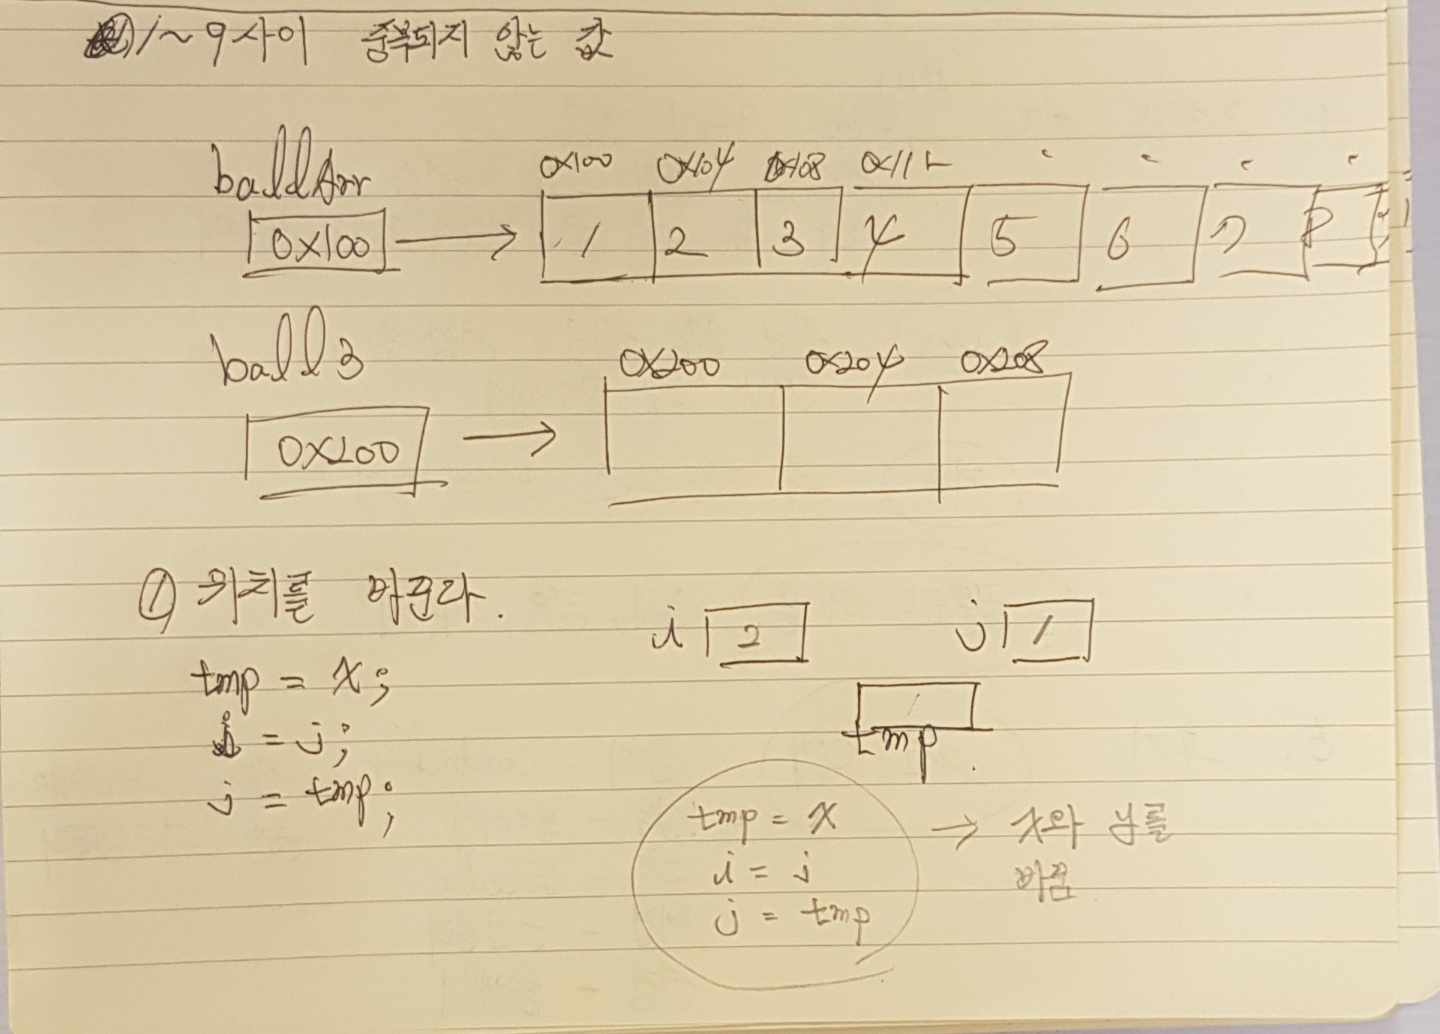 1~9사이 중복되지 않는 값
ballArr
0x100 0x104 0x108 0x112
0x100 1 2 3 4 5 6 7 8
ball3
0x200 0x204 0x208
0x200
① 위치를 바꾼다.
i 2 j 1
tmp = x;
i = j;
tmp
j = tmp;
tmp = x → x와 y를
i = j 바꿈
j = tmp